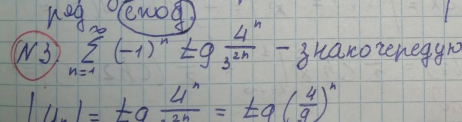 ряд сход.
№3. ∑_{n=1}^{∞} (-1)^n tg 4^n/3^{2n} - знакочередую
|u_n| = tg 4^n/3^{2n} = tg (4/9)^n